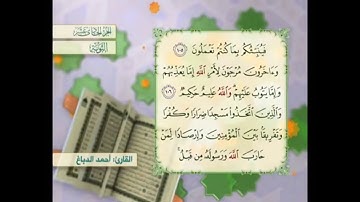 الجزء الحادي عشر
التوبة
فَيُنَبِّئُكُم بِمَا كُنتُمْ تَعْمَلُونَ ١٠٥
وَءَاخَرُونَ مُرْجَوْنَ لِأَمْرِ ٱللَّهِ إِمَّا يُعَذِّبُهُمْ
وَإِمَّا يَتُوبُ عَلَيْهِمْ وَٱللَّهُ عَلِيمٌ حَكِيمٌ ١٠٦
وَٱلَّذِينَ ٱتَّخَذُوا۟ مَسْجِدًا ضِرَارًا وَكُفْرًا
وَتَفْرِيقًۢا بَيْنَ ٱلْمُؤْمِنِينَ وَإِرْصَادًا لِّمَنْ
حَارَبَ ٱللَّهَ وَرَسُولَهُۥ مِن قَبْلُ ۚ
القارئ: أحمد الدباغ